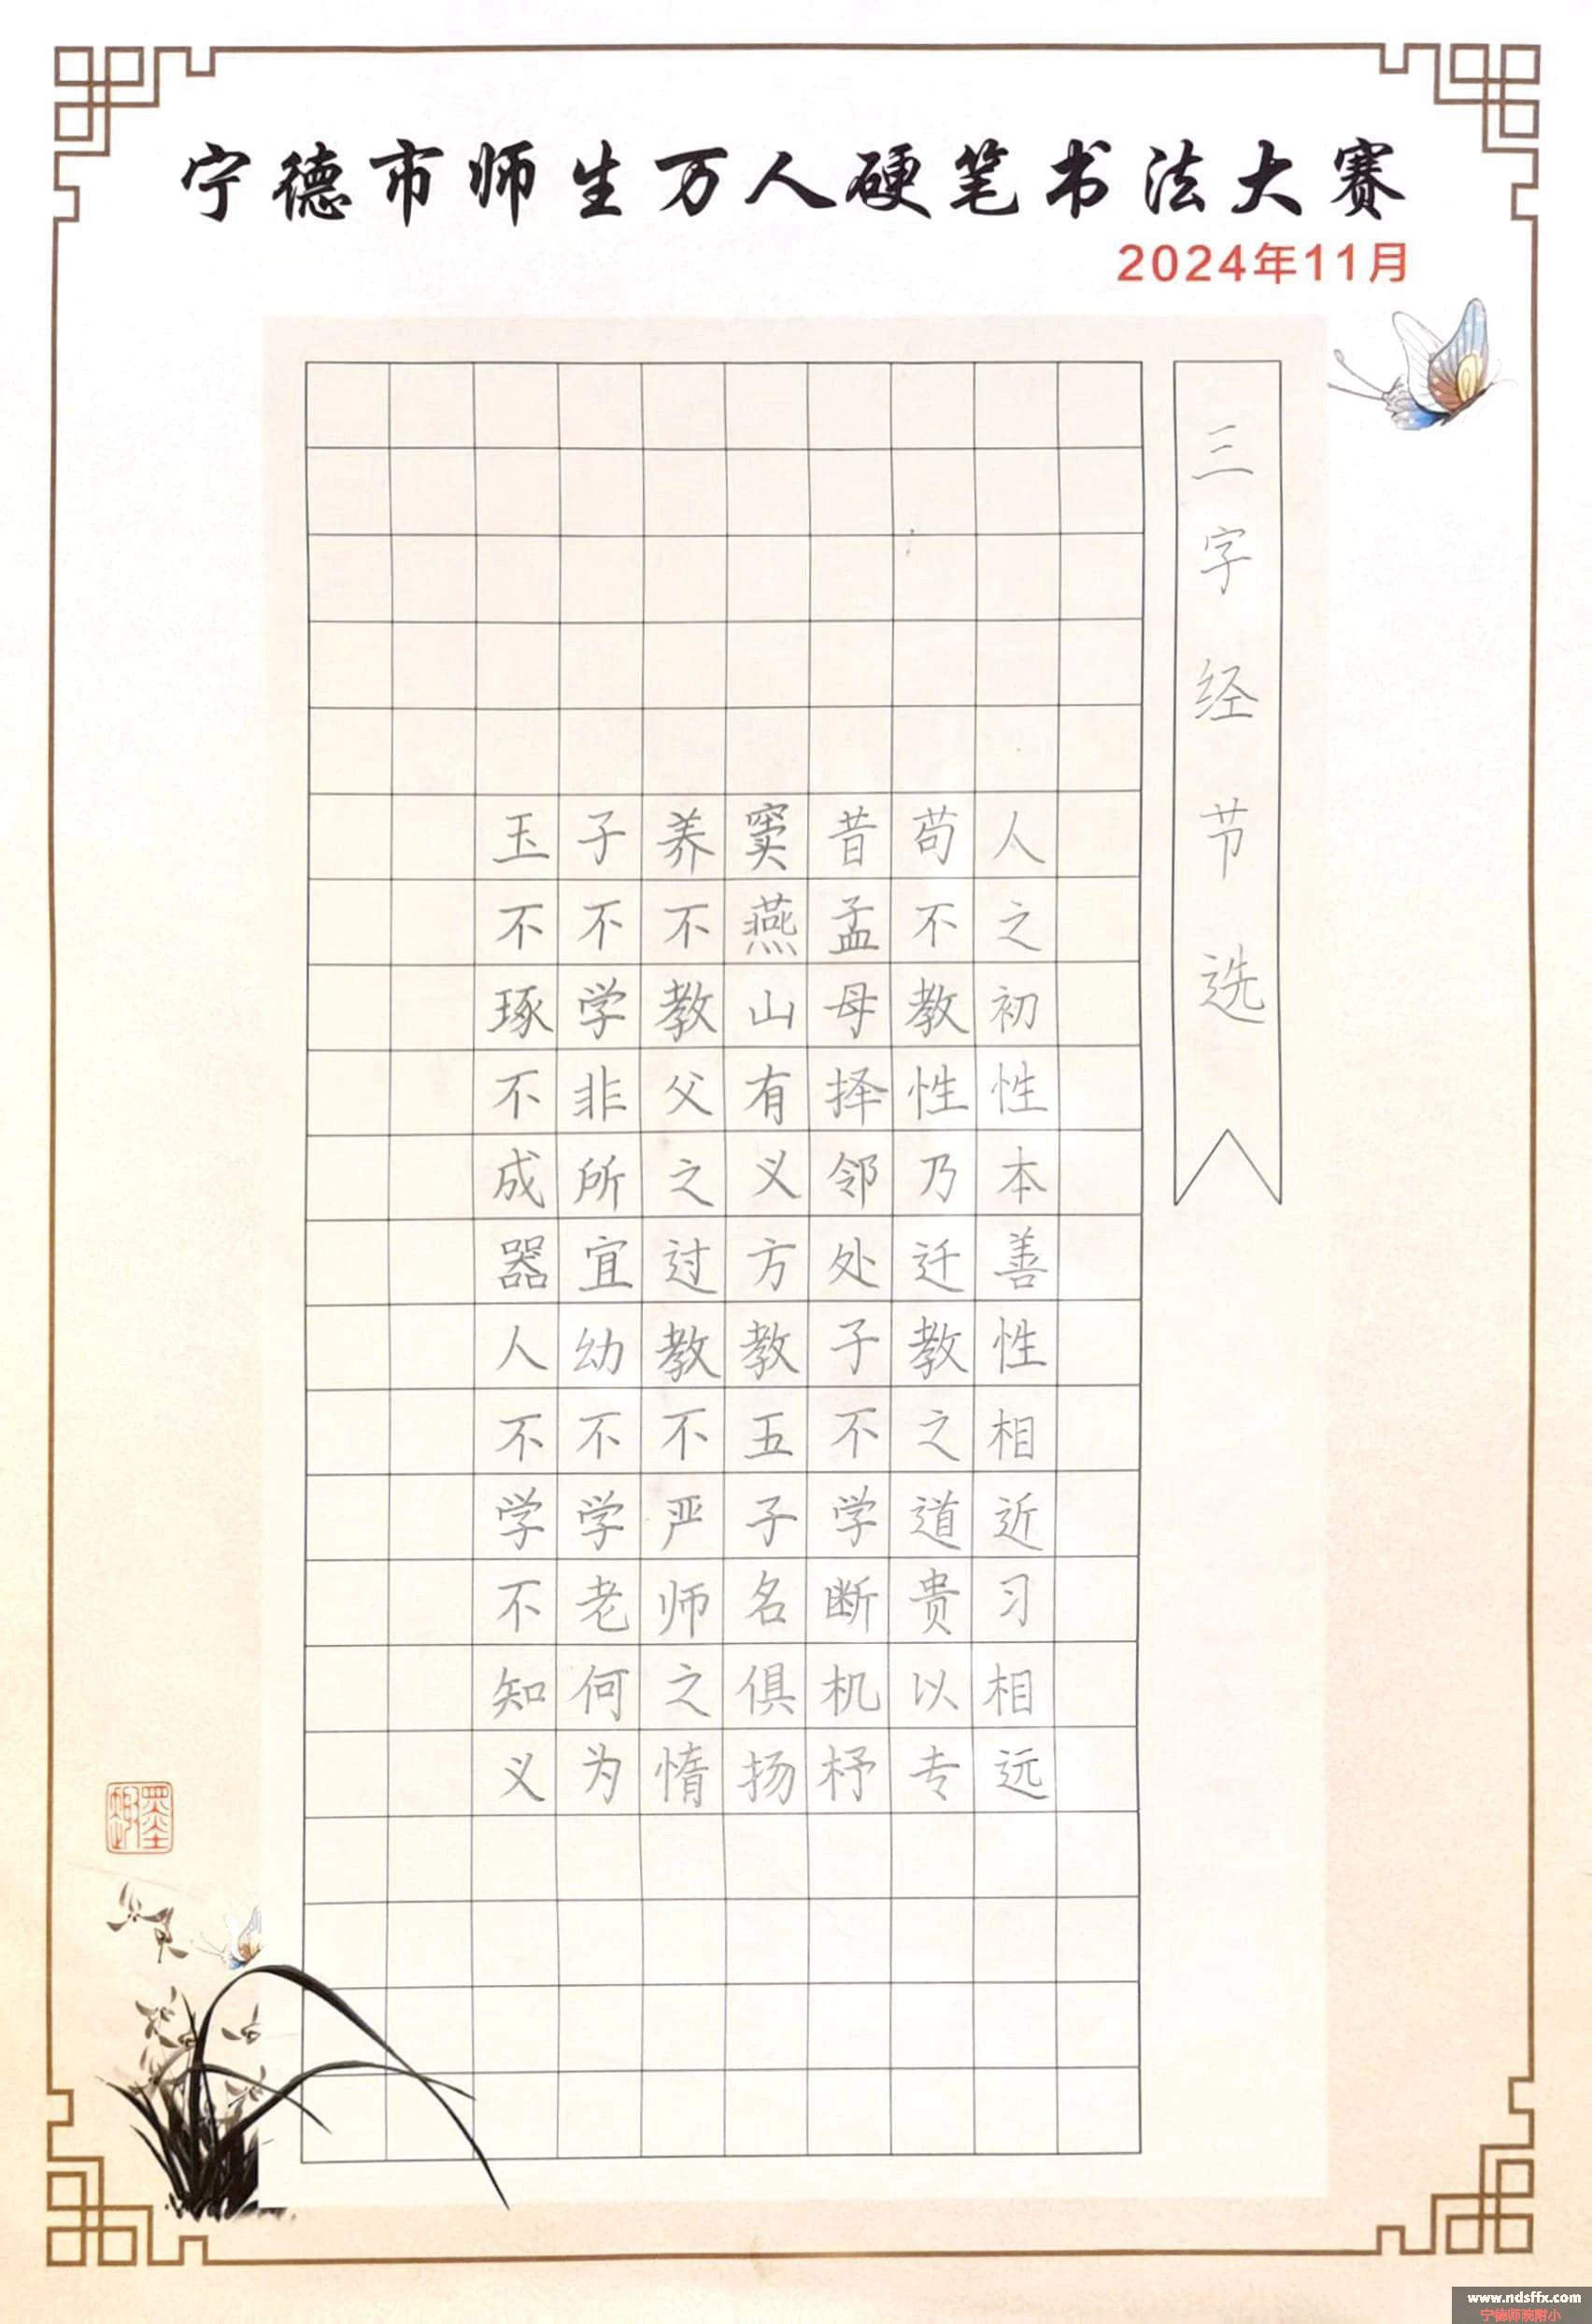 宁德市师生万人硬笔书法大赛
2024年11月
三字经节选
人之初性本善性相近习相远
苟不教性乃迁教之道贵以专
昔孟母择邻处子不学断机杼
窦燕山有义方教五子名俱扬
养不教父之过教不严师之惰
子不学非所宜幼不学老何为
玉不琢不成器人不学不知义
墨趣
www.ndsffx.com
宁德师院附小